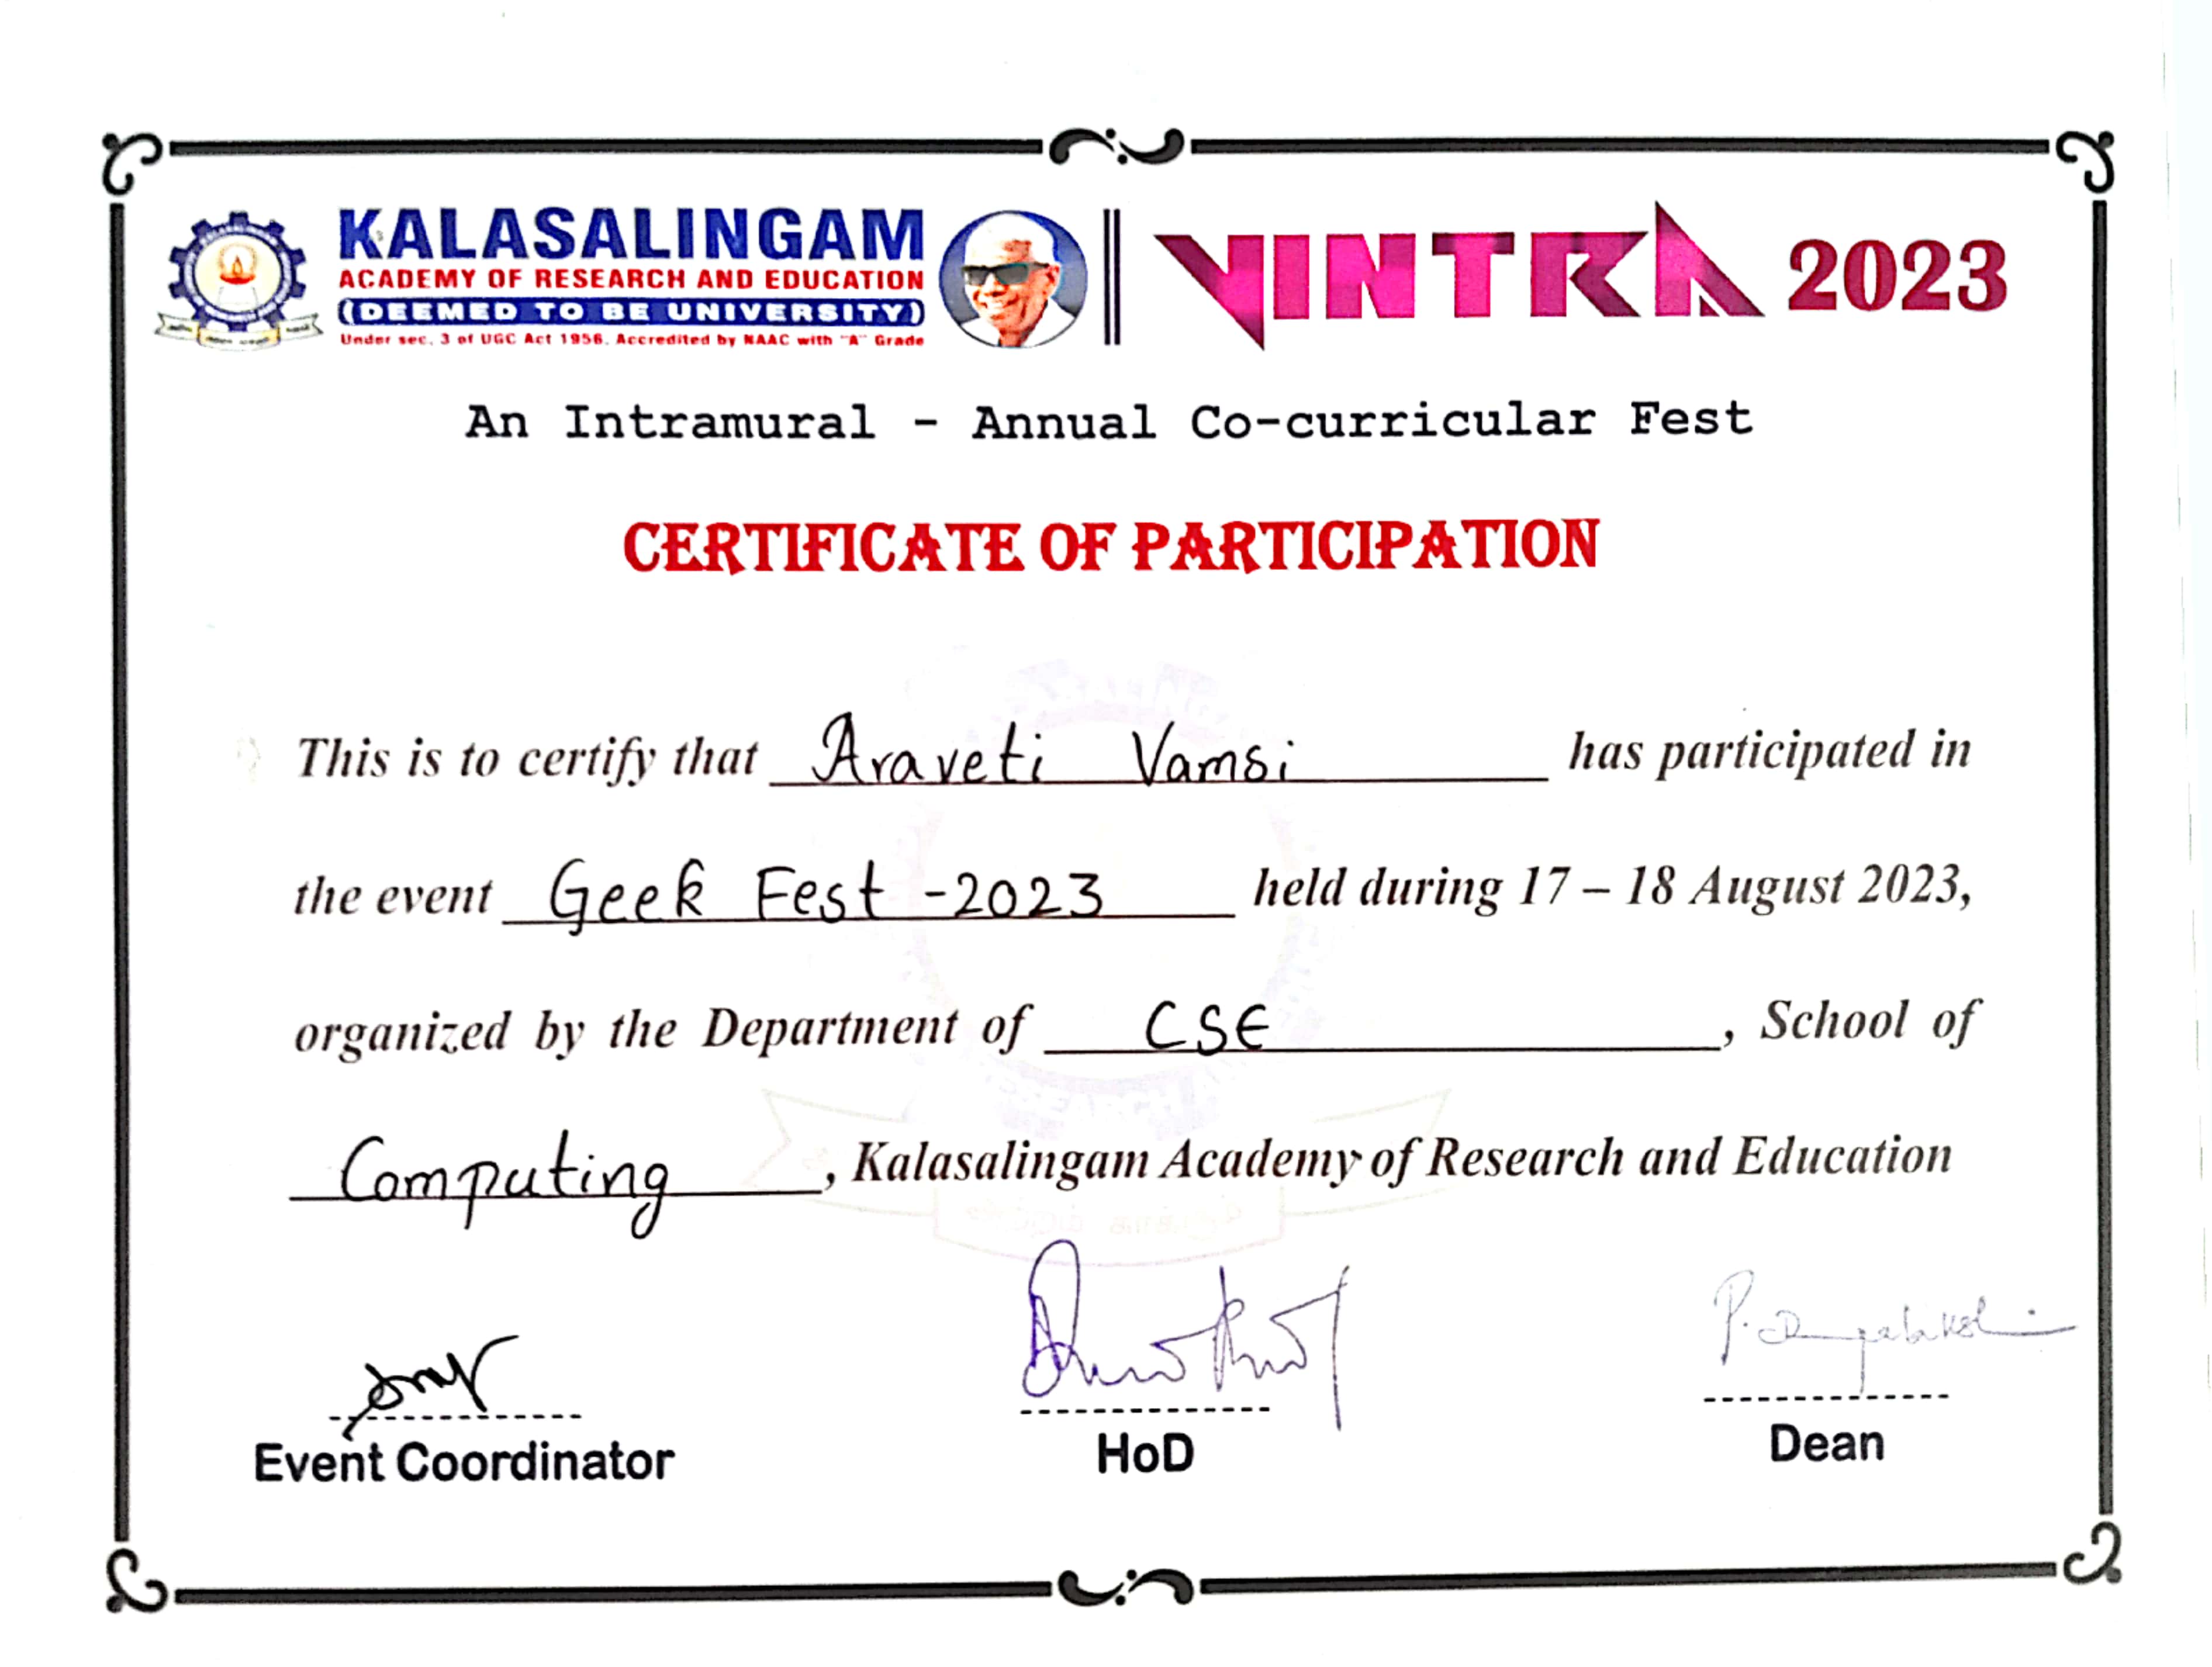 KALASALINGAM
ACADEMY OF RESEARCH AND EDUCATION
(DEEMED TO BE UNIVERSITY)
Under sec. 3 of UGC Act 1956. Accredited by NAAC with "A" Grade
VINTRA 2023
An Intramural - Annual Co-curricular Fest
CERTIFICATE OF PARTICIPATION
This is to certify that Araveti Vamsi has participated in
the event Geek Fest -2023 held during 17 – 18 August 2023,
organized by the Department of CSE, School of
Computing, Kalasalingam Academy of Research and Education
Event Coordinator
HoD
Dean